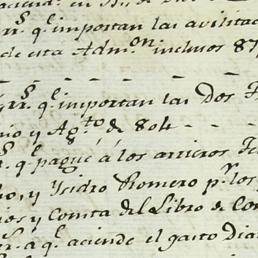 r.s q.e importan las avilitac
de esta Adm.on inclusos 87
r.s q.e importan las Dos F
y Ag.to de 804
q.e pagué á los arrieros
y Ysidro Romero p.r los
y Consta del Libro de Con
á q.e aciende el gasto Dia